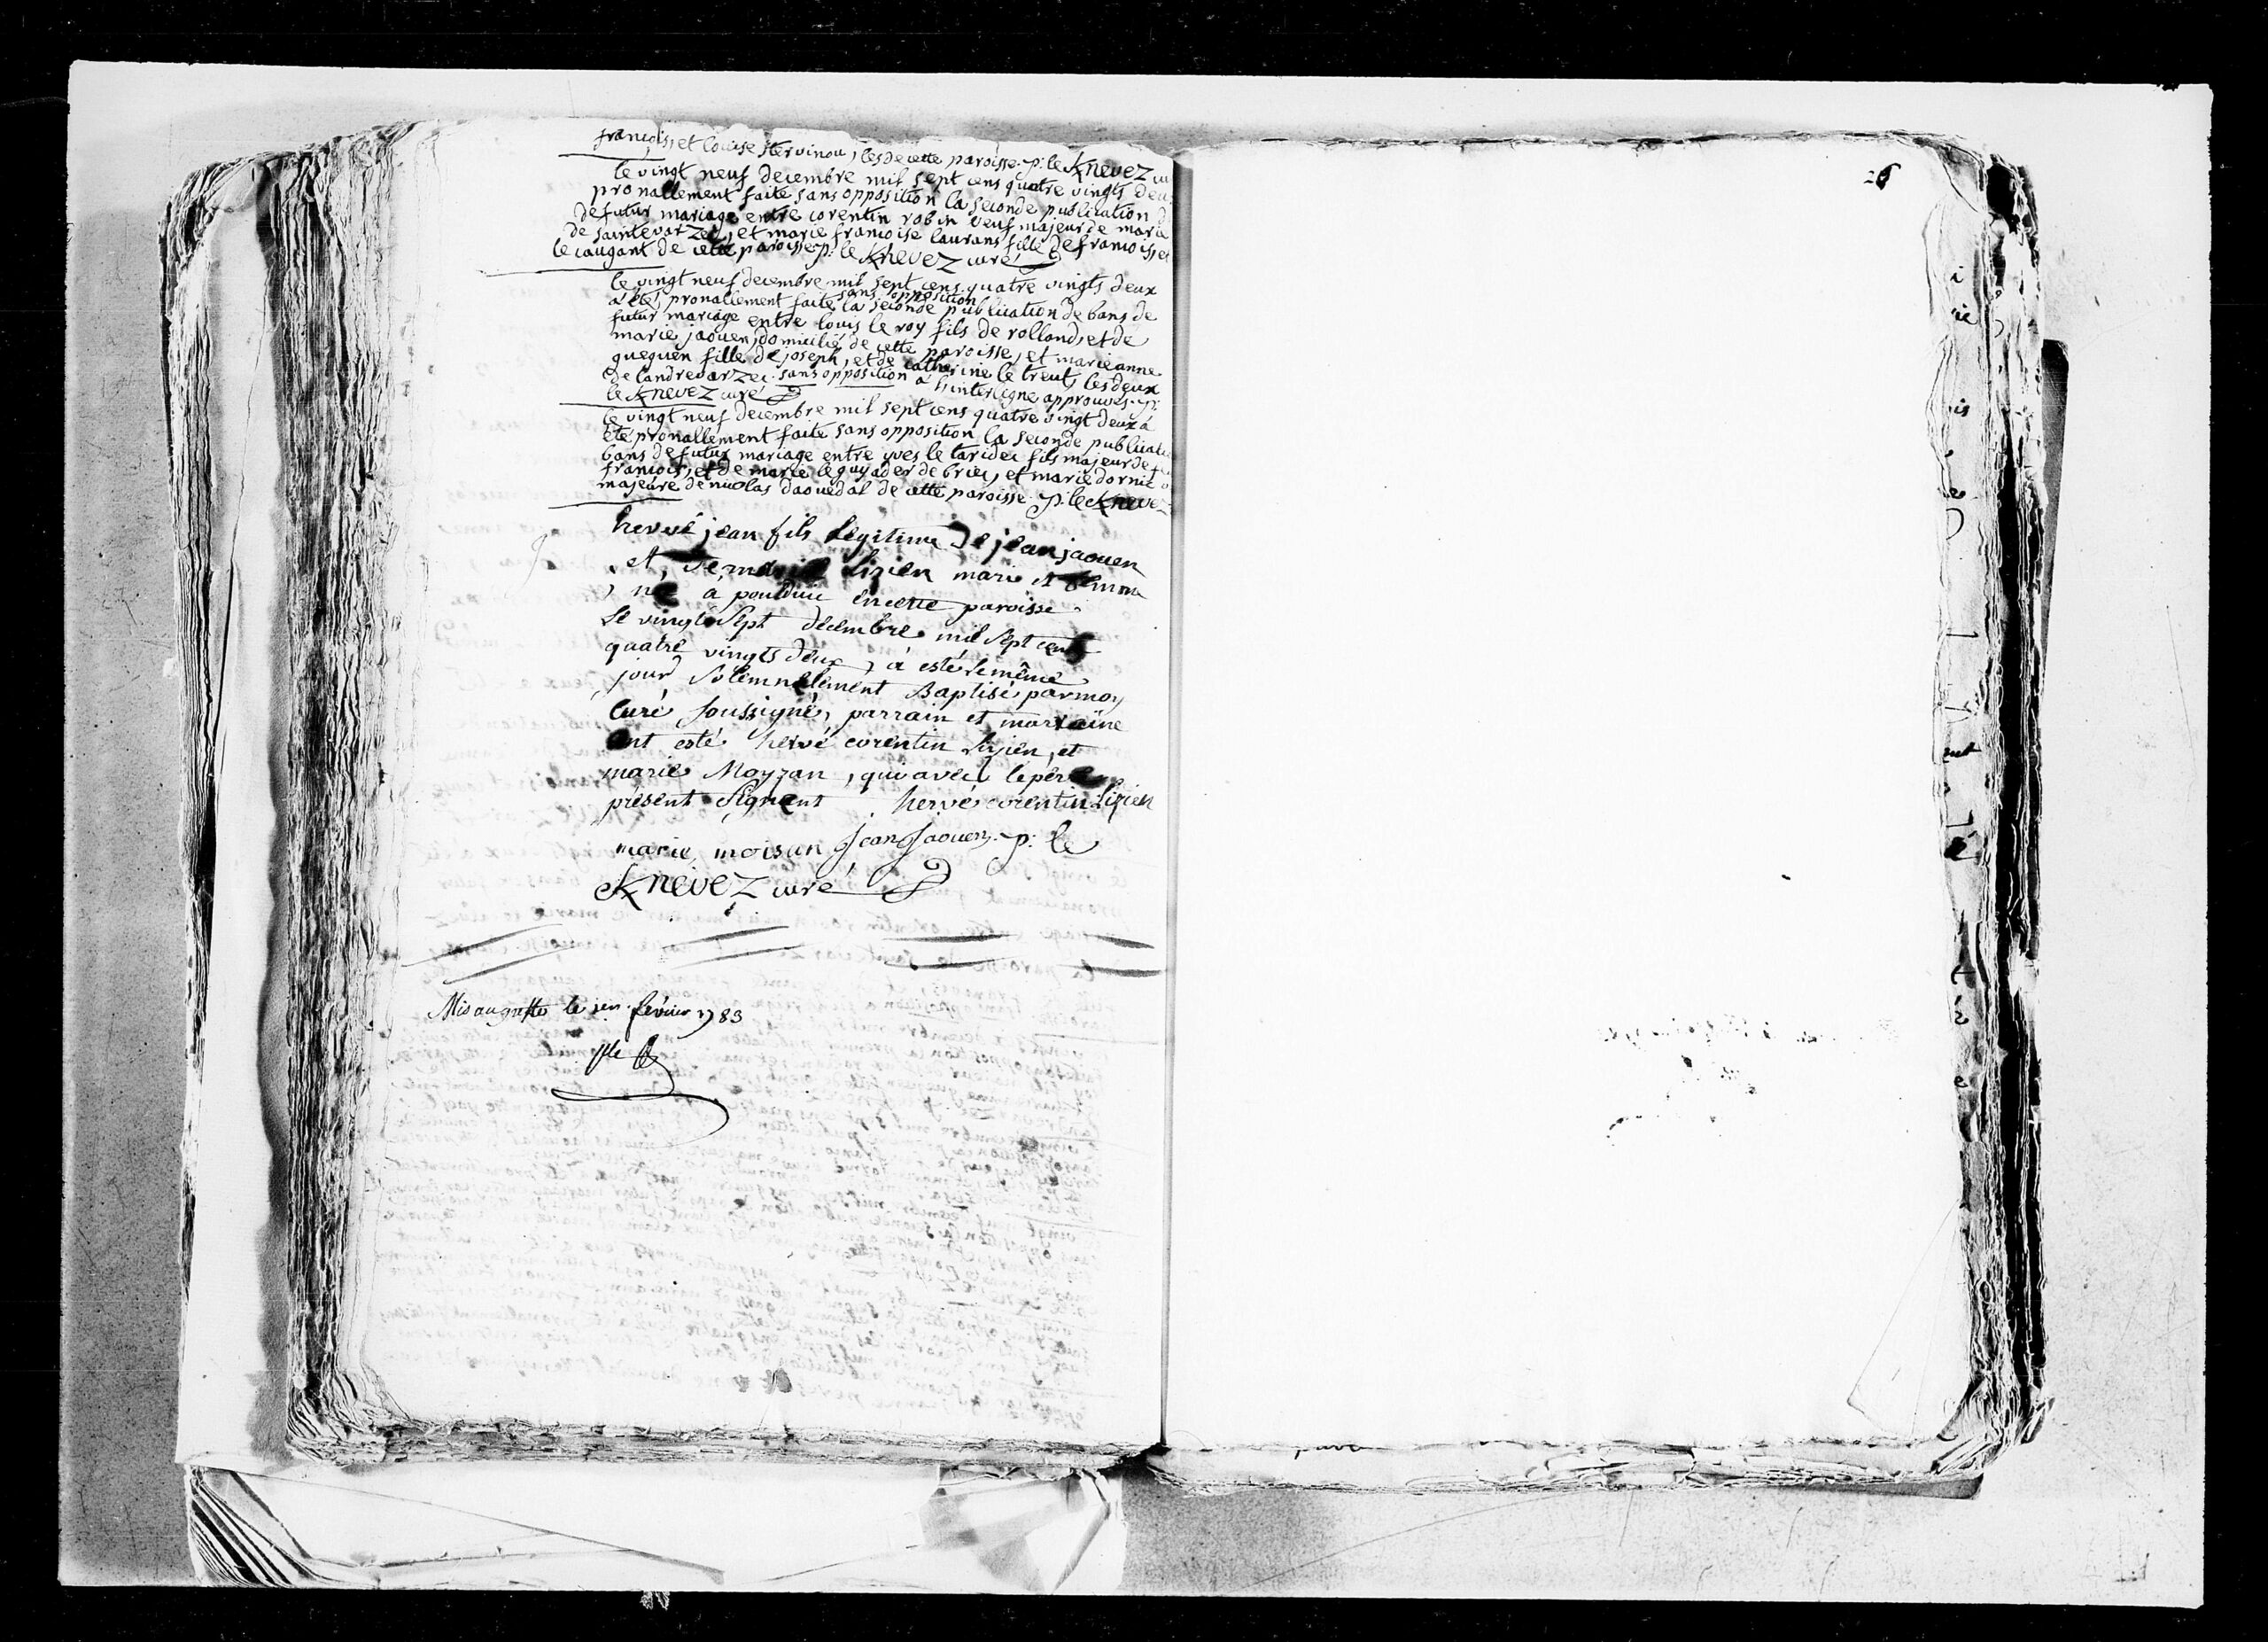 françois, et louise hervinou, les de cette paroisse. p: le Knevez
le vingt neuf decembre mil sept cens quatre vingts deu
pronallement faite sans opposition la seconde publication d
de futur mariage entre corentin robin veuf majeur de marie
de saintevarzec, et marie francoise laurans fille de francois, et
le caugant de cette paroisse. p: le Knevez curé
le vingt neuf decembre mil sept cens quatre vingts deux
à été, pronallement faite sans opposition la seconde publication de bans de
futur mariage entre louis le roy fils de rolland, et de
marie jaouen, domicilié de cette paroisse, et marieanne
queguen fille de joseph, et de catherine le treut, les deux
de landrevarzec. sans opposition à l'interligne approuvés. p:
le Knevez curé
le vingt neuf decembre mil sept cens quatre vingt deux à
été pronallement faite sans opposition la seconde publicati
bans de futur mariage entre yves le taridec fils majeur de
francois, et de marie le guyader de briec, et marie dornic
majeure de nicolas daouedal de cette paroisse. p: le Kneve
hervé jean fils legitime de jean jaouen
et, de marie Lizien marie et femme
, né à poulduic en cette paroisse
le vingt Sept decembre mil sept cent
quatre vingts deux, à esté le même
jour solemnelement Baptisé par moy
Curé soussigné, parrain et marraine
ont esté hervé corentin Lizien, et
marie Moyzan, qui avec le père
présent Signent hervé corentin Lizien
marie moisan Jean Jaouen. p: le
Knevez curé
Mis au greffe le 1er février 1783
26